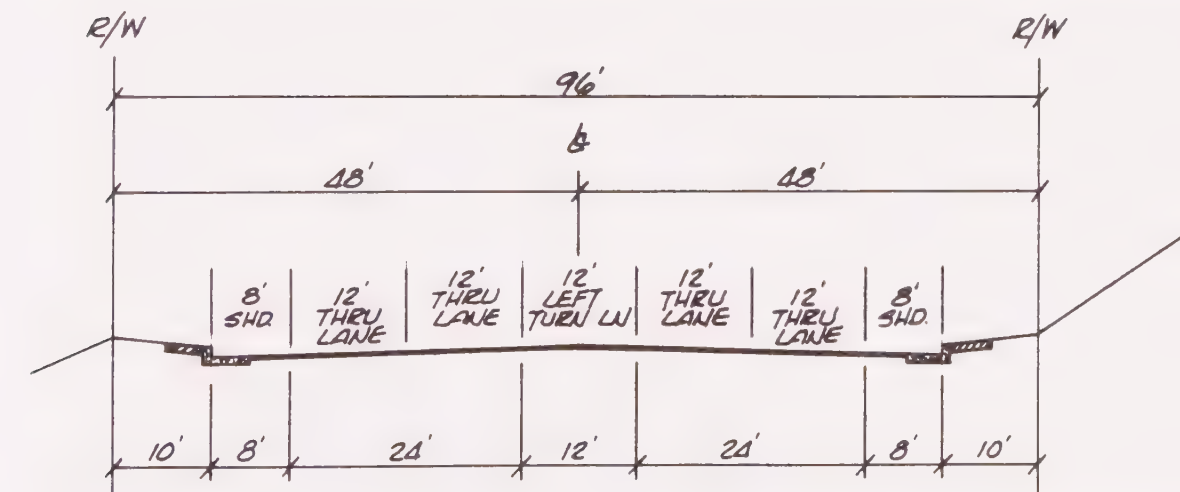 R/W
R/W
96'
℄
48'
48'
8'
SHD.
12'
THRU
LANE
12'
THRU
LANE
12'
LEFT
TURN LN
12'
THRU
LANE
12'
THRU
LANE
8'
SHD.
10'
8'
24'
12'
24'
8'
10'